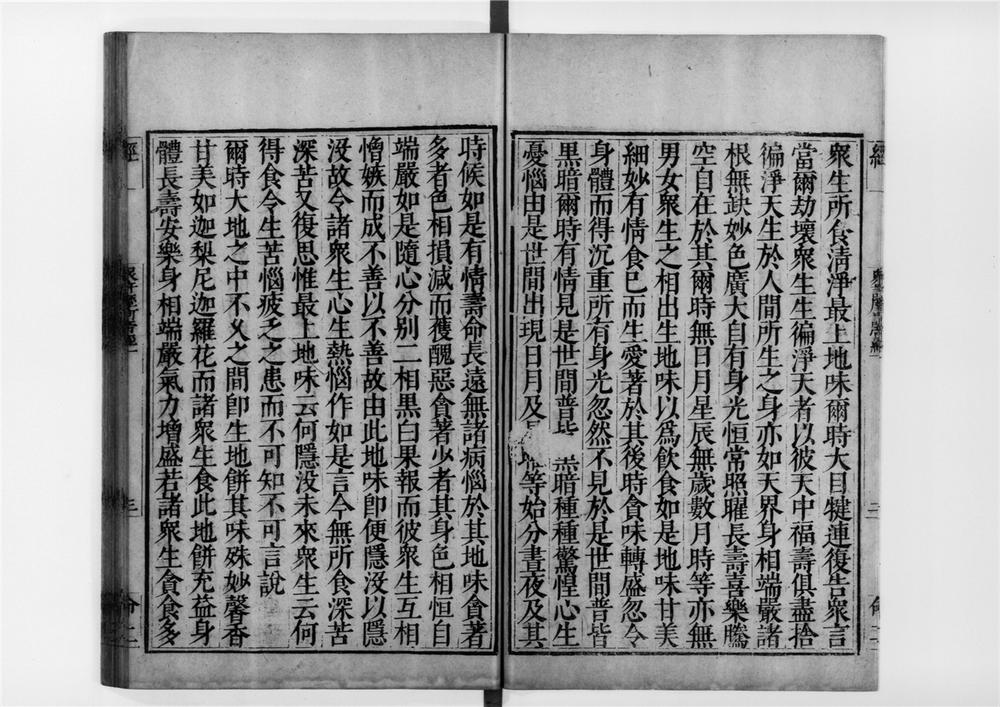 衆生所食清淨最上地味爾時大目犍連復告衆言
當爾劫壞衆生生徧淨天者以彼天中福壽俱盡捨
徧淨天生於人間所生之身亦如天界身相端嚴諸
根無缺妙色廣大自有身光恒常照曜長壽喜樂騰
空自在於其爾時無日月星辰無歲數月時等亦無
男女衆生之相出生地味以爲飲食如是地味甘美
細妙有情食已而生愛著於其後時貪味轉盛忽令
身體而得沉重所有身光忽然不見於是世間普皆
黒暗爾時有情見是世間普皆 黒暗種種驚惶心生
憂惱由是世間出現日月及 等始分晝夜及其
時候如是有情壽命長遠無諸病惱於其地味貪著
多者色相損減而獲醜惡貪著少者其身色相恒自
端嚴如是隨心分别二相黒白果報而彼衆生互相
憎嫉而成不善以不善故由此地味卽便隱沒以隱
沒故令諸衆生心生熱惱作如是言今無所食深苦
深苦又復思惟最上地味云何隱没未來衆生云何
得食令生苦惱疲乏之患而不可知不可言說
爾時大地之中不乆之間卽生地餅其味殊妙馨香
甘美如迦梨尼迦羅花而諸衆生食此地餅充益身
體長壽安樂身相端嚴氣力增盛若諸衆生貪食多